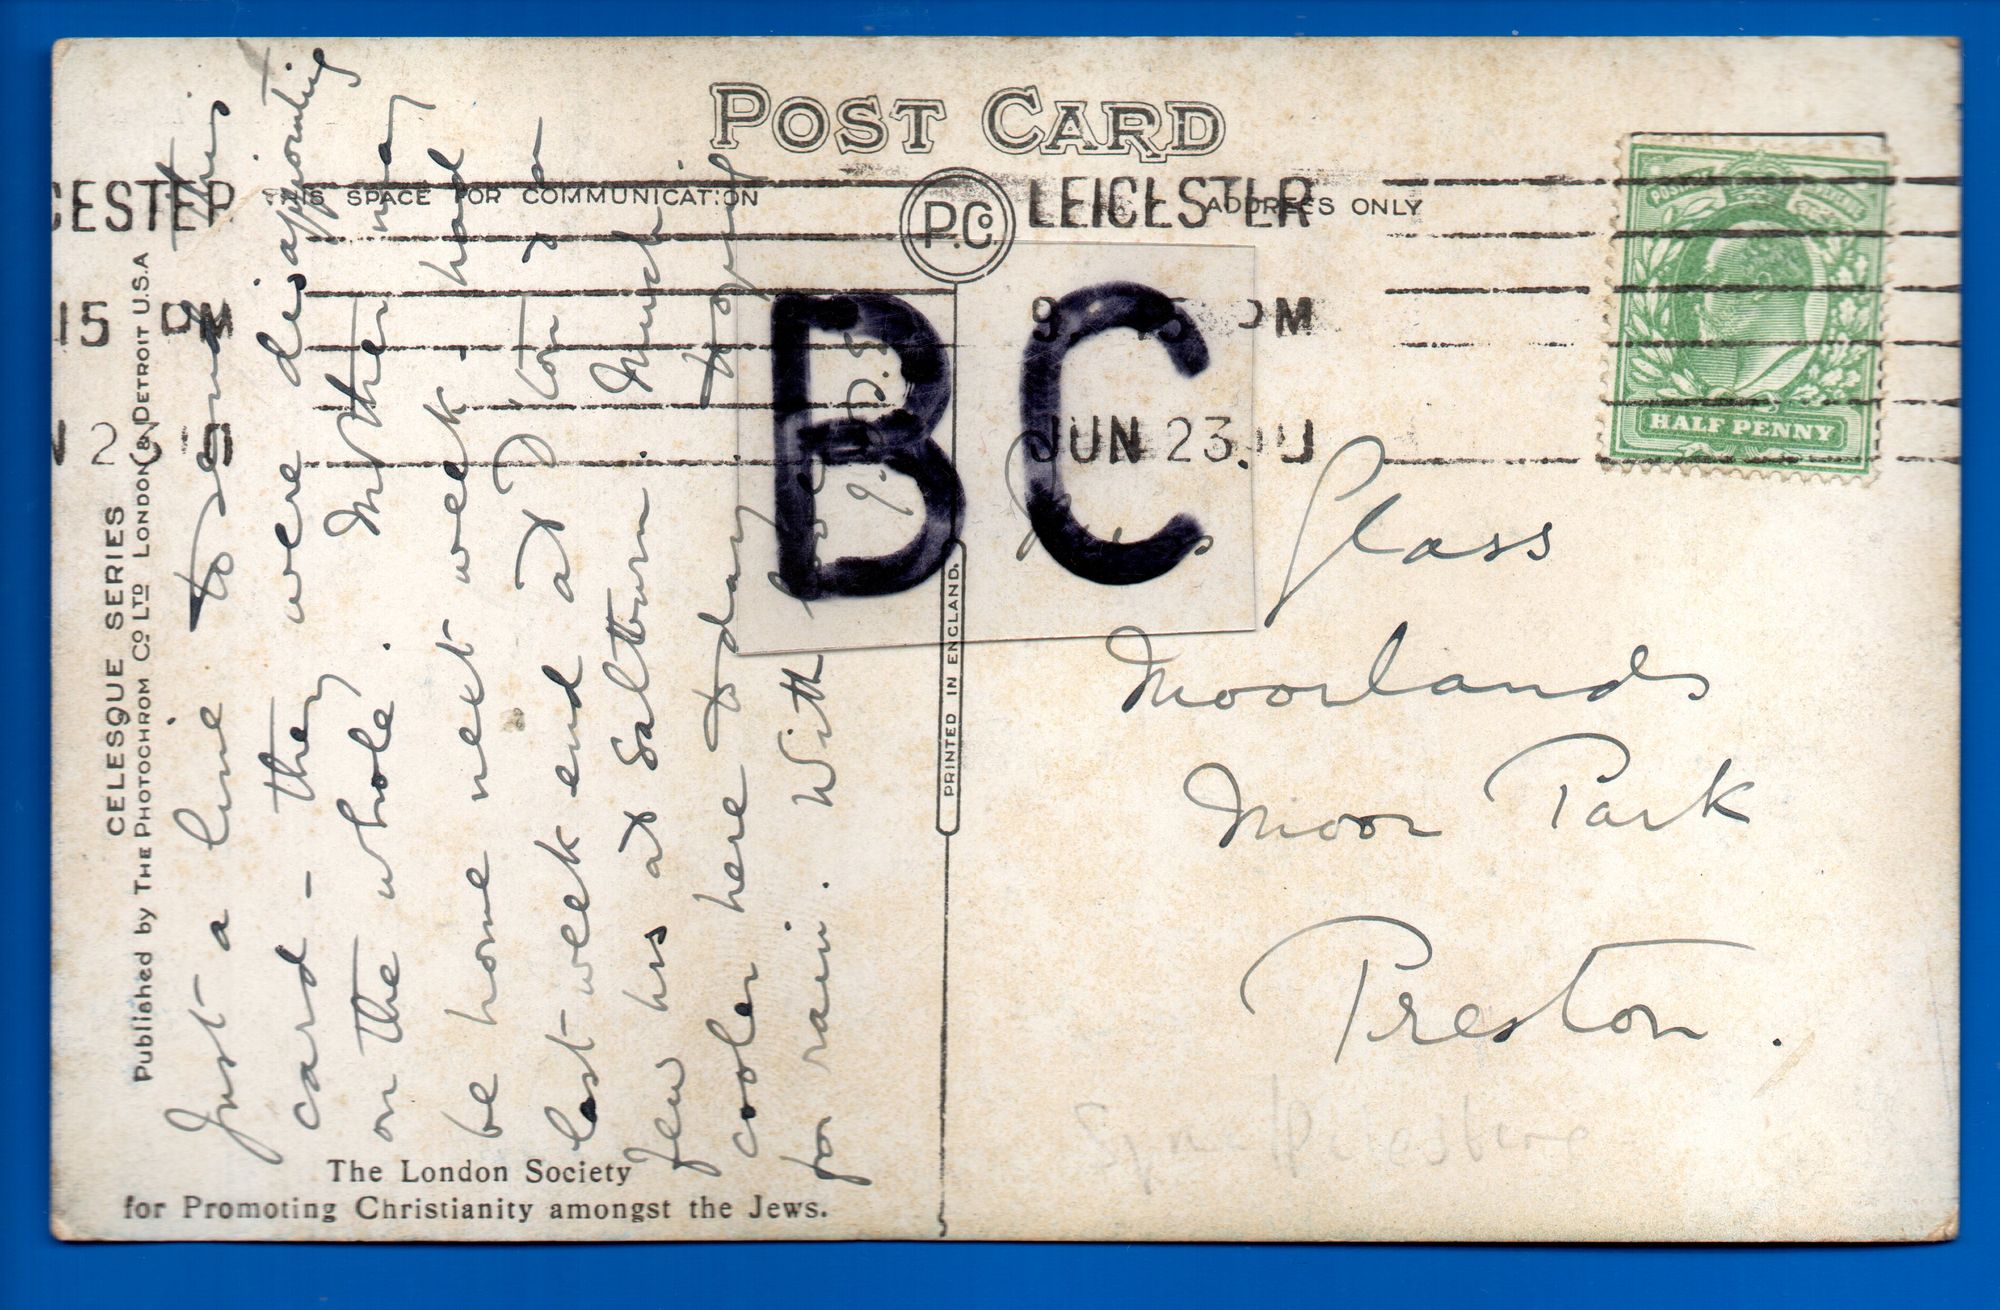 POST CARD
THIS SPACE FOR COMMUNICATION
ADDRESS ONLY
P.Co
CESTER
15 PM
LEICESTER
9. 15 PM
JUN 23
HALF PENNY
BC
CELESQUE SERIES
Published by THE PHOTOCHROM Co LTD LONDON & DETROIT U.S.A
PRINTED IN ENGLAND.
Just a line to send this
card - they were disappointing
on the whole. Mother may
be home next week. had
last week end at
few hrs at Saltburn. Much
cooler here to day
for rain. With love
Miss Glass
Moorlands
Moor Park
Preston.
The London Society
for Promoting Christianity amongst the Jews.